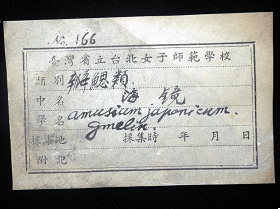 No. 166
臺灣省立台北女子師範學校
類別 瓣鰓類
中名 海鏡
學名 amusium japonicum.
gmelin.
採集地 採集時 年 月 日
附記